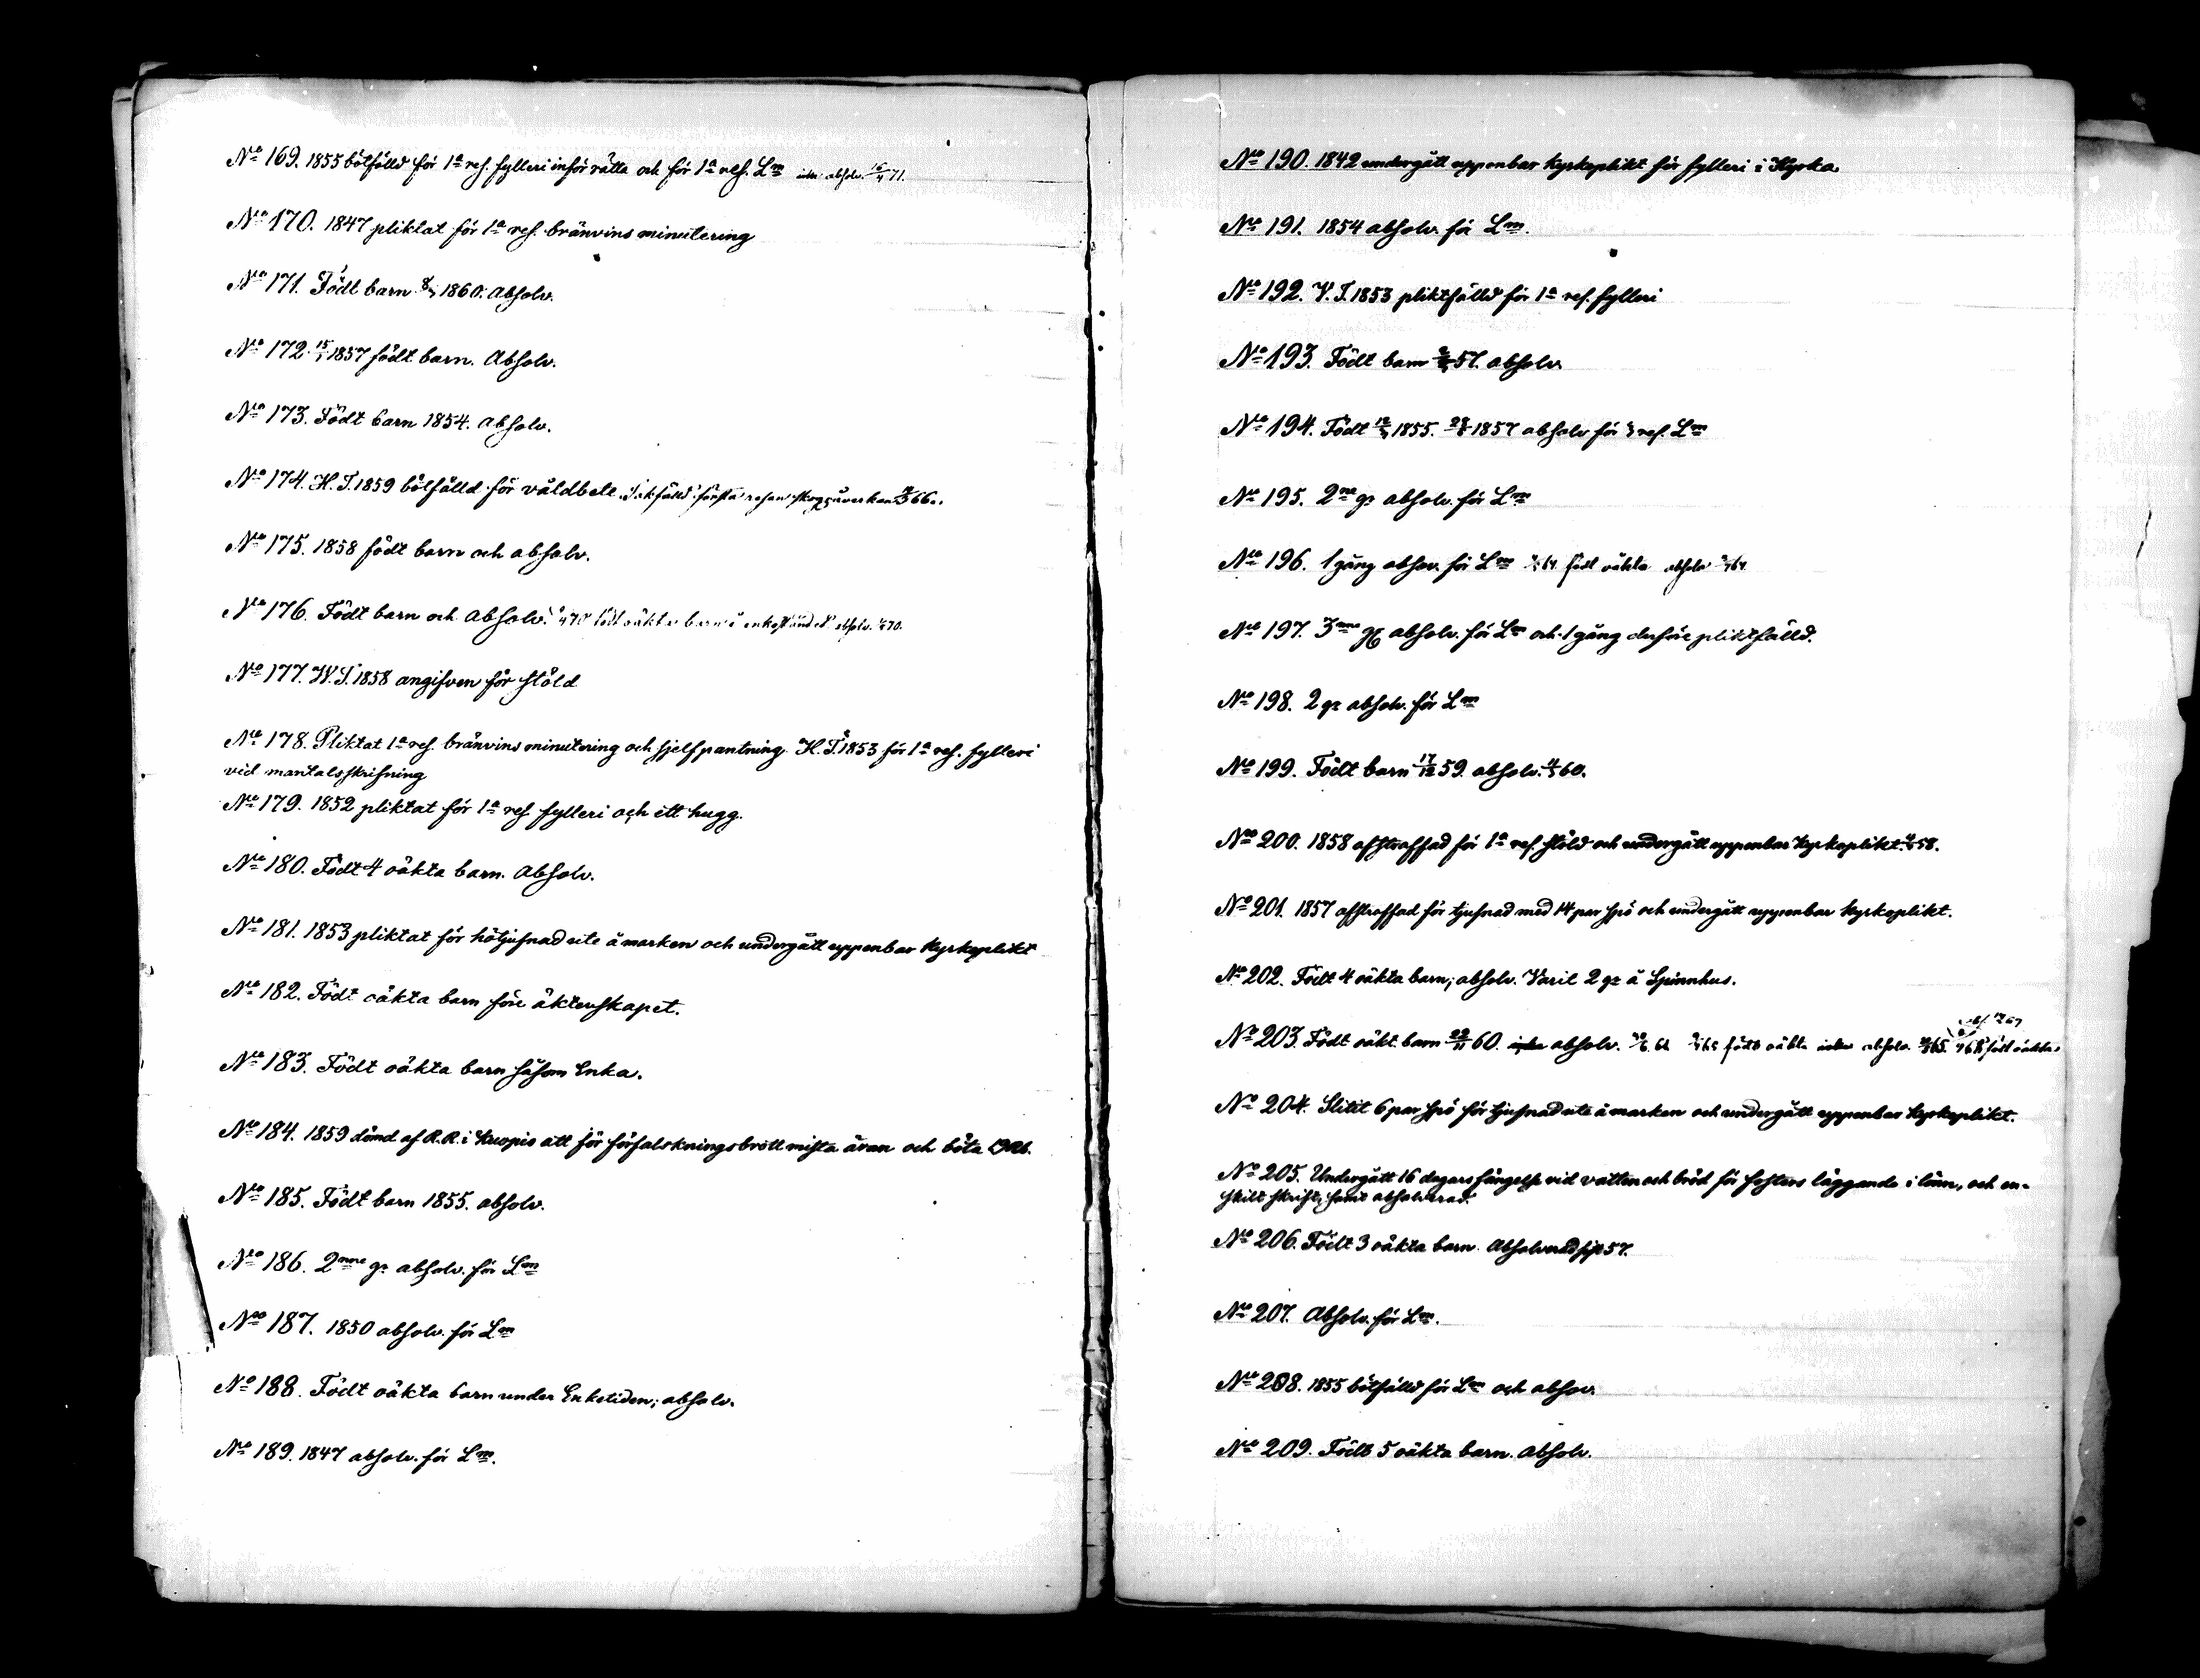 No 169. 1855 bötfälld för 1a res. fylleri inför rätta och för 1a res. Lm icke absolv. 16/4 71.
No 170. 1847 pliktat för 1a res. bränvins minutering
No 171. Födt barn 1860. Absolv.
No 172. 15/1 1857 födt barn. Absolv.
No 173. Födt barn 1854. Absolv.
No 174. H. T. 1859 bötfälld för våldbete. Sakfälld första resan skogsåverkan 66.
No 175. 1858 födt barn och absolv.
No 176. Födt barn och Absolv. 70 födt oäkta barn i enkestånd absolv. 70.
No 177. W. T. 1858 angifven för stöld
No 178. Pliktat 1a res. bränvins minutering och sjelfpantning. H. T. 1853 för 1a res. fylleri
vid mantalsskrifning
No 179. 1852 pliktat för 1a res fylleri och ett hugg.
No 180. Födt 4 oäkta barn. Absolv.
No 181. 1853 pliktat för hötjufnad ute å marken och undergått uppenbar kyrkoplikt
No 182. Födt oäkta barn före äktenskapet.
No 183. Födt oäkta barn såsom Enka.
No 184. 1859 dömd af R.R. i Kuopio att för förfalskningsbrott mista äran och böta
No 185. Födt barn 1855. absolv.
No 186. 2nne gr absolv. för Lm
No 187. 1850 absolv. för Lm
No 188. Födt oäkta barn under Enketiden; absolv.
No 189. 1847 absolv. för Lm.
No 190. 1842 undergått uppenbar kyrkoplikt för fylleri i Kyrka
No 191. 1854 absolv. för Lm.
No 192. V. T. 1853 pliktfälld för 1a res. fylleri
No 193. Födt barn 57. absolv.
No 194. Födt 1855. 1857 absolv för res. Lm
No 195. 2ne gr absolv. för Lm
No 196. 1 gång absov. för Lm 64 född oäkta absolv 64
No 197. 3nne gr absolv. för Lm och 1 gång derföre pliktfälld.
No 198. 2 gr absolv. för Lm
No 199. Födt barn 17/12 59. absolv. 4/3 60.
No 200. 1858 afstraffad för 1a res. stöld och undergått uppenbar kyrkoplikt 58.
No 201. 1857 afstraffad för tjufnad med 14 par spö och undergått uppenbar kyrkoplikt.
No 202. Födt 4 oäkta barn; absolv. Varit 2 gr å Spinnhus.
No 203. Födt oäkt. barn 22/11 60. icke absolv. födt oäkta icke absolv. 65. födt oäkta
No 204. Slitit 6 par spö för tjufnad ute å marken och undergått uppenbar kyrkoplikt.
No 205. Undergått 16 dagars fängelse vid vatten och bröd för fosters läggande i lönn, och en-
skilt skrift, samt absolverad.
No 206. Födt 3 oäkta barn. Absolverad 57.
No 207. Absolv. för Lm.
No 208. 1855 bötfälld för Lm och absov.
No 209. Födt 5 oäkta barn. Absolv.